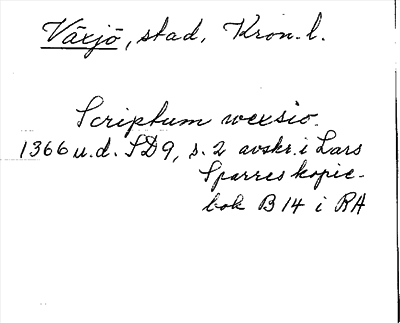 Växjö, stad, Kron. l.
Scriptum wexsio.
1366 u. d. SD9, s. 2 avskr. i Lars
Sparres kopie-
bok B 14 i RA